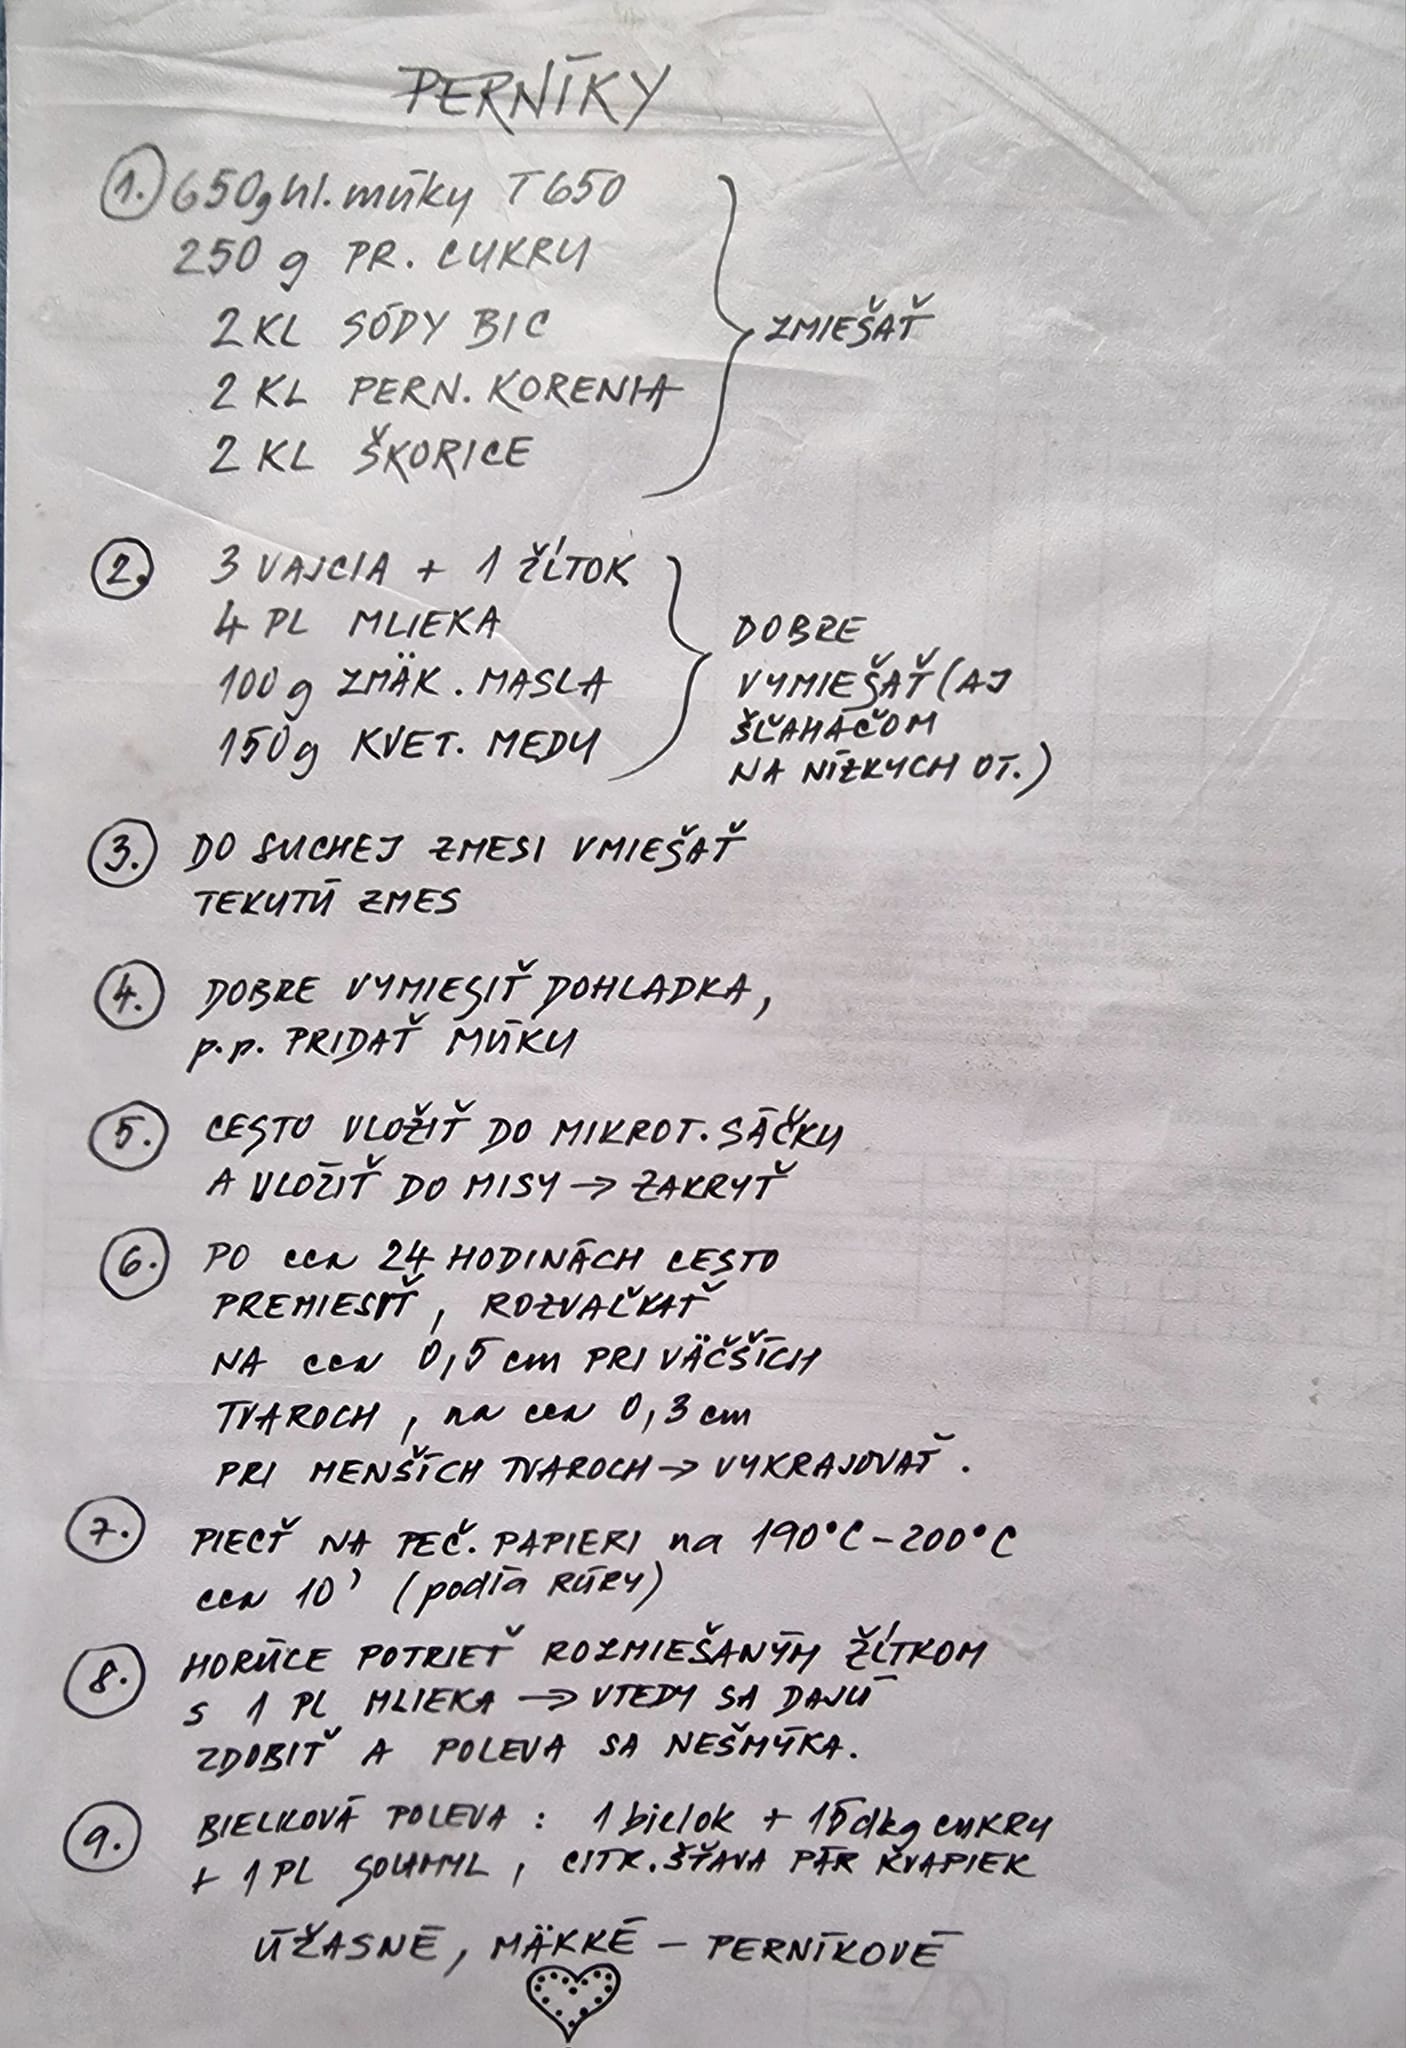 PERNÍKY
1. 650g hl. múky T650
250 g PR. CUKRU
2 KL SÓDY BIC
2 KL PERN. KORENIA
2 KL ŠKORICE
ZMIEŠAŤ
2. 3 VAJCIA + 1 ŽĹTOK
4 PL MLIEKA
100 g ZMÄK. MASLA
150g KVET. MEDU
DOBRE
VYMIEŠAŤ (AJ
ŠĽAHAČOM
NA NÍZKYCH OT.)
3. DO SUCHEJ ZMESI VMIEŠAŤ
TEKUTÚ ZMES
4. DOBRE VYMIESIŤ DOHLADKA,
p.p. PRIDAŤ MÚKU
5. CESTO VLOŽIŤ DO MIKROT. SÁČKU
A VLOŽIŤ DO MISY → ZAKRYŤ
6. PO cca 24 HODINÁCH CESTO
PREMIESIŤ, ROZVAĽKAŤ
NA cca 0,5 cm PRI VÄČŠÍCH
TVAROCH, na cca 0,3 cm
PRI MENŠÍCH TVAROCH → VYKRAJOVAŤ.
7. PIECŤ NA PEČ. PAPIERI na 190°C - 200°C
cca 10' (podľa RÚRY)
8. HORÚCE POTRIEŤ ROZMIEŠANÝM ŽĹTKOM
s 1 PL MLIEKA → VTEDY SA DAJÚ
ZDOBIŤ A POLEVA SA NEŠMÝKA.
9. BIELKOVÁ POLEVA : 1 bielok + 15 dkg CUKRU
+ 1 PL SOLAMYL, CITR. ŠŤAVA PÁR KVAPIEK
ÚŽASNÉ, MÄKKÉ - PERNÍKOVÉ